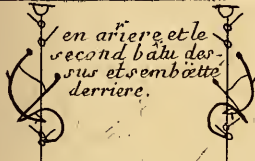 en ariere, et le
second bâtu des-
sus et s'emböetté
derriere.